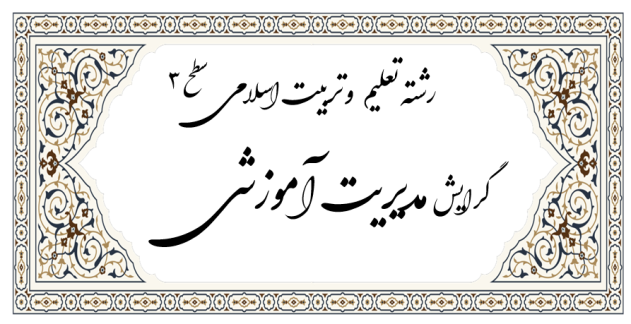 رشته تعلیم وتربیت اسلامی سطح ۳
گرایش مدیریت آموزشی